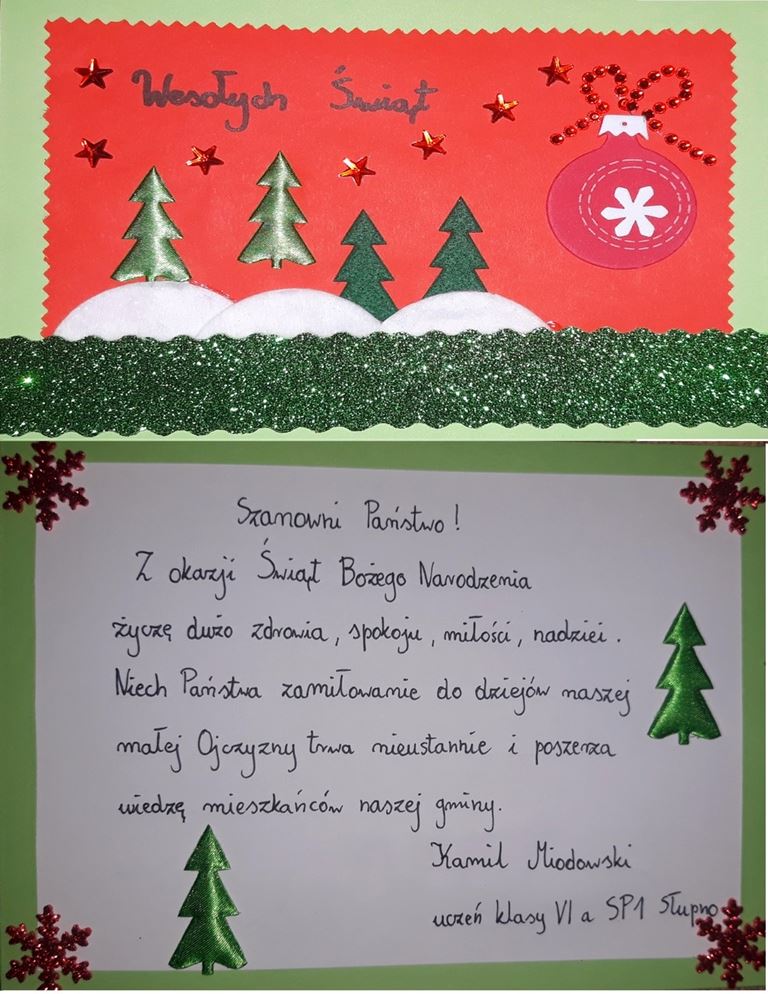 Wesołych Świąt
Szanowni Państwo!
Z okazji Świąt Bożego Narodzenia
życzę dużo zdrowia, spokoju, miłości, nadziei.
Niech Państwa zamiłowanie do dziejów naszej
małej Ojczyzny trwa nieustannie i poszerza
wiedzę mieszkańców naszej gminy.
Kamil Miodowski
uczeń klasy VI a SP1 Słupno